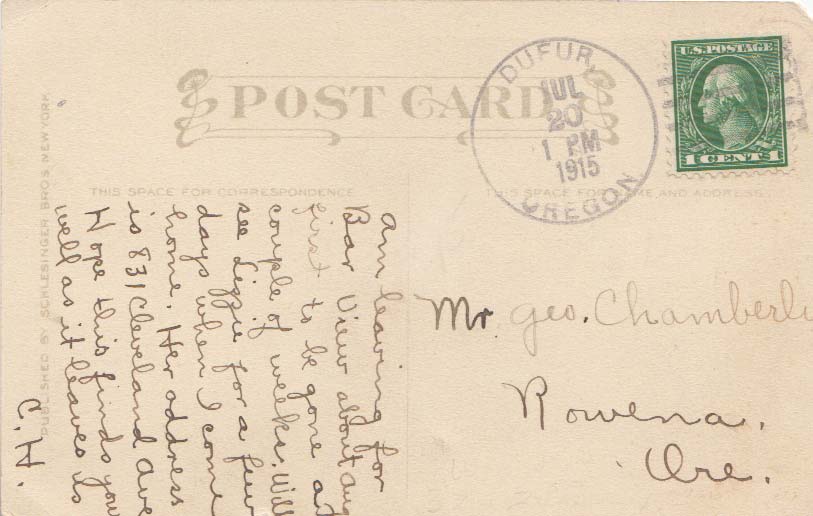 POST CARD
THIS SPACE FOR CORRESPONDENCE
THIS SPACE FOR NAME AND ADDRESS
PUBLISHED BY SCHLESINGER BROS. NEW YORK
DUFUR,
JUL
20
1 PM
1915
OREGON
U.S. POSTAGE
1 CENT 1
am leaving for
Bar View about Aug
first to be gone a
couple of weeks. Will
see Lizzie for a few
days when I come
home. Her address
is 831 Cleveland Ave
Hope this finds you
well as it leaves us
C. H.
Mr. Geo. Chamberli
Rowena,
Ore.